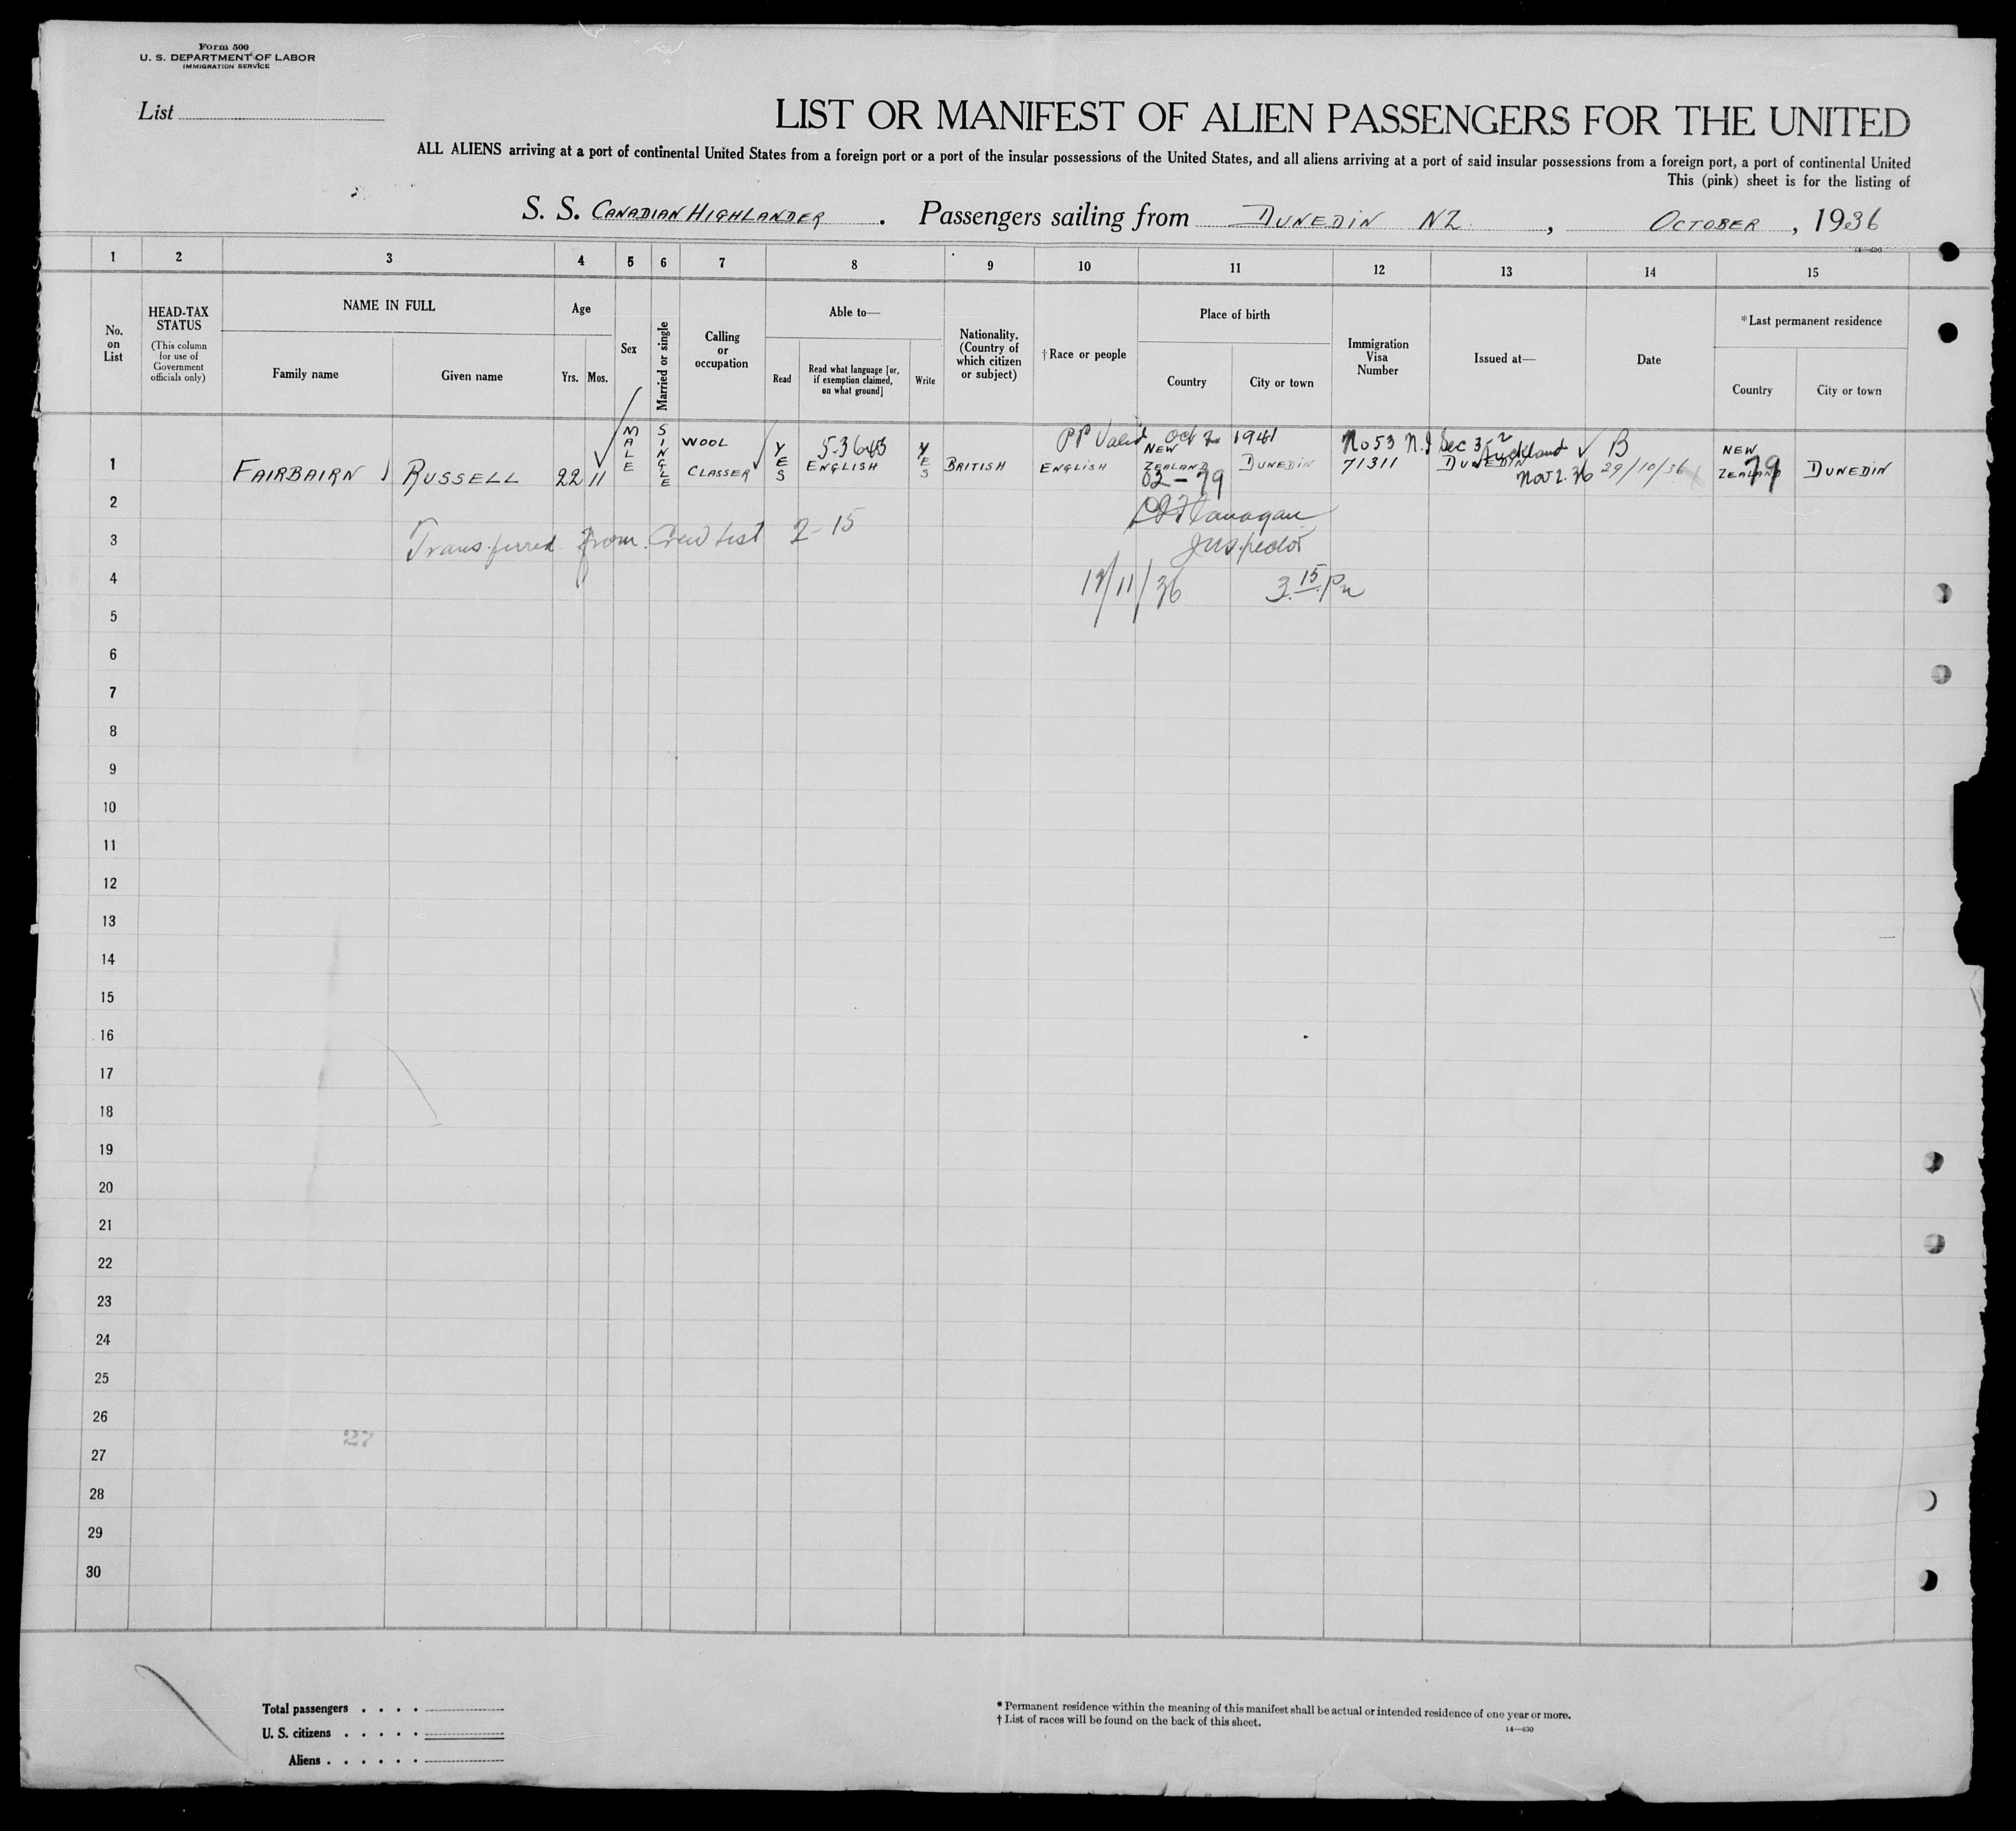 Form 500
U. S. DEPARTMENT OF LABOR
IMMIGRATION SERVICE
List
LIST OR MANIFEST OF ALIEN PASSENGERS FOR THE UNITED
ALL ALIENS arriving at a port of continental United States from a foreign port or a port of the insular possessions of the United States, and all aliens arriving at a port of said insular possessions from a foreign port, a port of continental United
This (pink) sheet is for the listing of
S. S. CANADIAN HIGHLANDER . Passengers sailing from DUNEDIN NZ. , OCTOBER , 1936
14—430
1 2 3 4 5 6 7 8 9 10 11 12 13 14 15
No. on List
HEAD-TAX STATUS
(This column for use of Government officials only)
NAME IN FULL
Family name
Given name
Age
Yrs. Mos.
Sex
Married or single
Calling or occupation
Able to—
Read
Read what language [or, if exemption claimed, on what ground]
Write
Nationality. (Country of which citizen or subject)
†Race or people
Place of birth
Country
City or town
Immigration Visa Number
Issued at—
Date
*Last permanent residence
Country
City or town
PP Valid Oct 2 1941 No 53 N.I Sec 3-2 Auckland B
Nov 2. 36
1 FAIRBAIRN RUSSELL 22 11 MALE SINGLE WOOL CLASSER YES ENGLISH YES BRITISH ENGLISH NEW ZEALAND DUNEDIN 71311 DUNEDIN 29/10/36 NEW ZEALAND DUNEDIN
02-79
79
2
Flanagan
3 Transferred from Crew List 2-15 Inspector
4 /11/36 3.15 Pm
5
6
7
8
9
10
11
12
13
14
15
16
17
18
19
20
21
22
23
24
25
26
27
27
28
29
30
Total passengers . . . .
U. S. citizens . . . . .
Aliens . . . . . .
* Permanent residence within the meaning of this manifest shall be actual or intended residence of one year or more.
† List of races will be found on the back of this sheet.
14—430